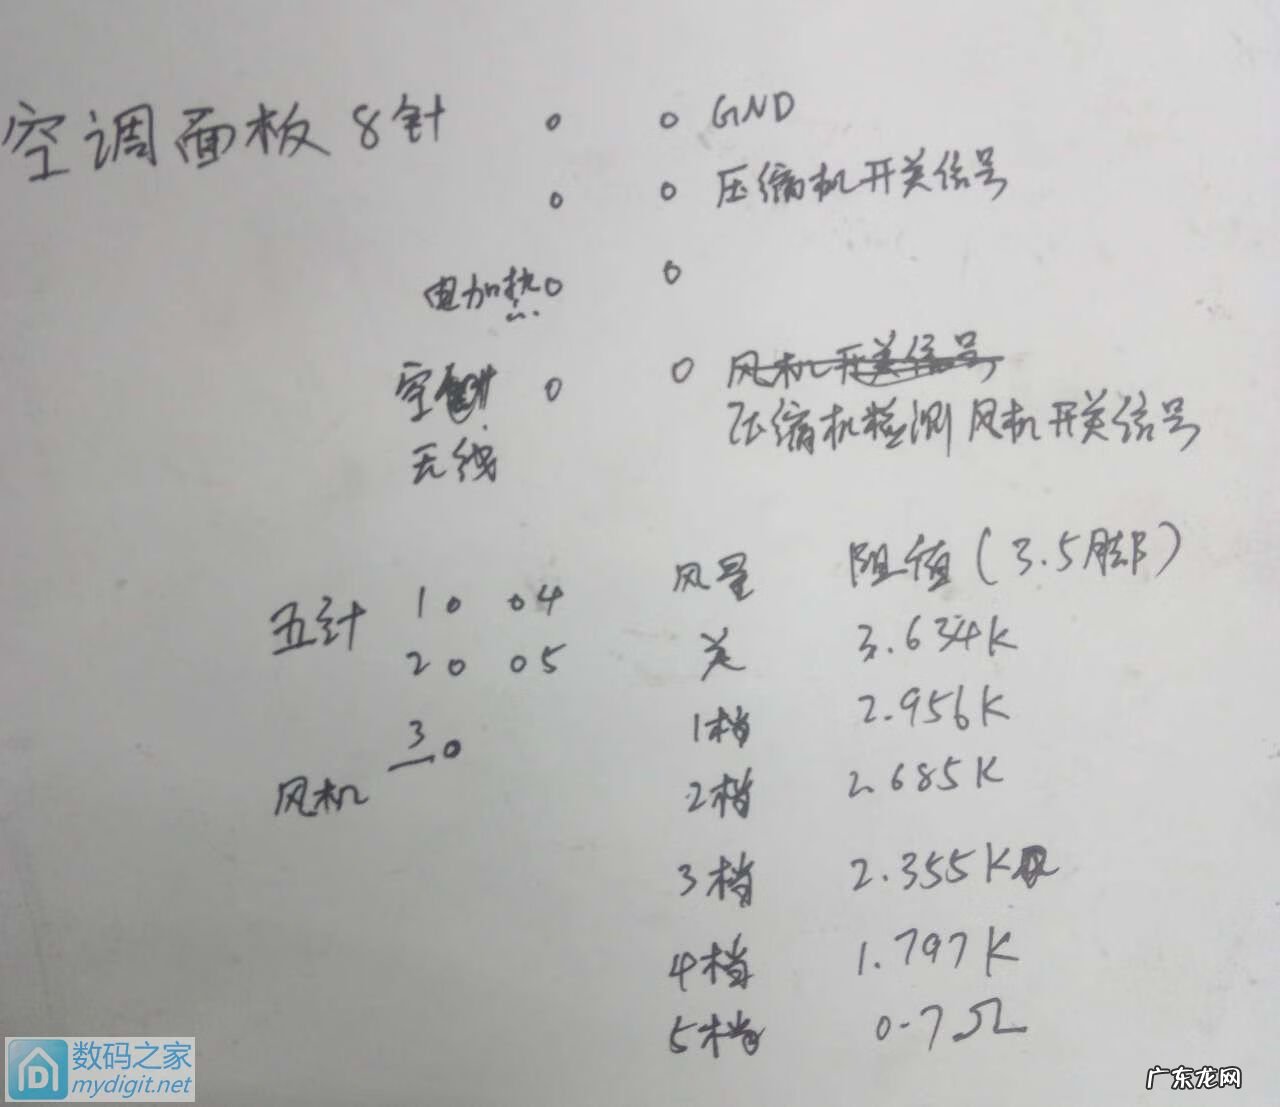 空调面板 8针
GND
压缩机开关信号
电加热
风机开关信号
空
压缩机检测风机开关信号
无线
风量 阻值(3.5脚)
五针 1 4
2 5
关 3.634K
3
1档 2.956K
风机
2档 2.685K
3档 2.355K
4档 1.797K
5档 0.7Ω
数码之家
mydigit.net
广东龙网